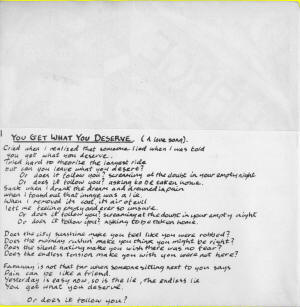 YOU GET WHAT YOU DESERVE. (A love song).
Cried when I realised that someone lied when I was told
you get what you deserve.
Tried hard to theorise the longest ride
but can you leave what you desert?
Or does it follow you? screaming at the doubt in your empty night
Or does it follow you? asking to be taken home.
Sunk when I drank the dream and drowned in pain
when I found out that image was a lie
When I removed its coat, its air of evil
left me feeling empty and ever so unsure.
Or does it follow you? screaming at the doubt in your empty night
Or does it follow you? asking to be taken home
Does the city sunshine make you feel like you were robbed?
Does the morning make you think you might be right?
Does the silent make you wish there was no fear?
Does the endless tension make you wish you were not here?
Faraway is not that far when someone sitting next to you says
Pain can be like a friend.
Yesterday is easy now, so is the lie, the endless lie
You get what you deserve.
Or does it follow you?